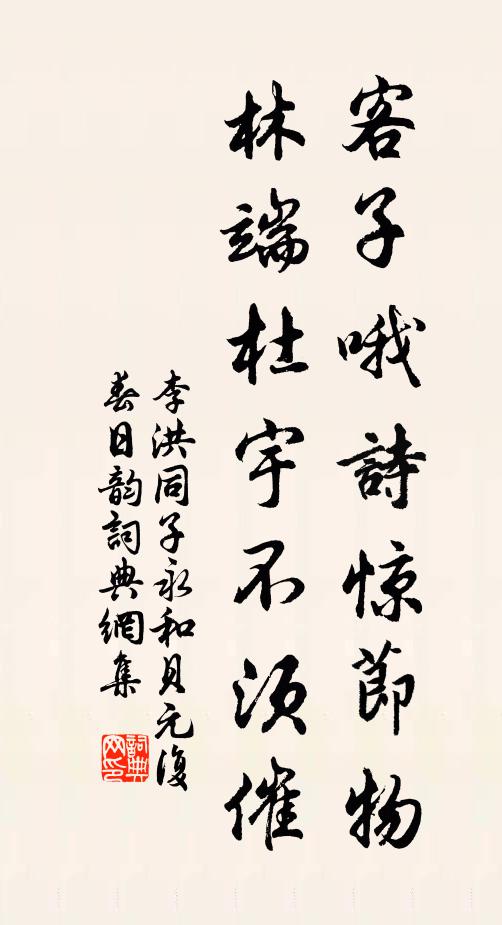 客子哦詩惊節物
林端杜宇不須催
李洪同子永和貝元復
春日韵詞典網集
詞典網印